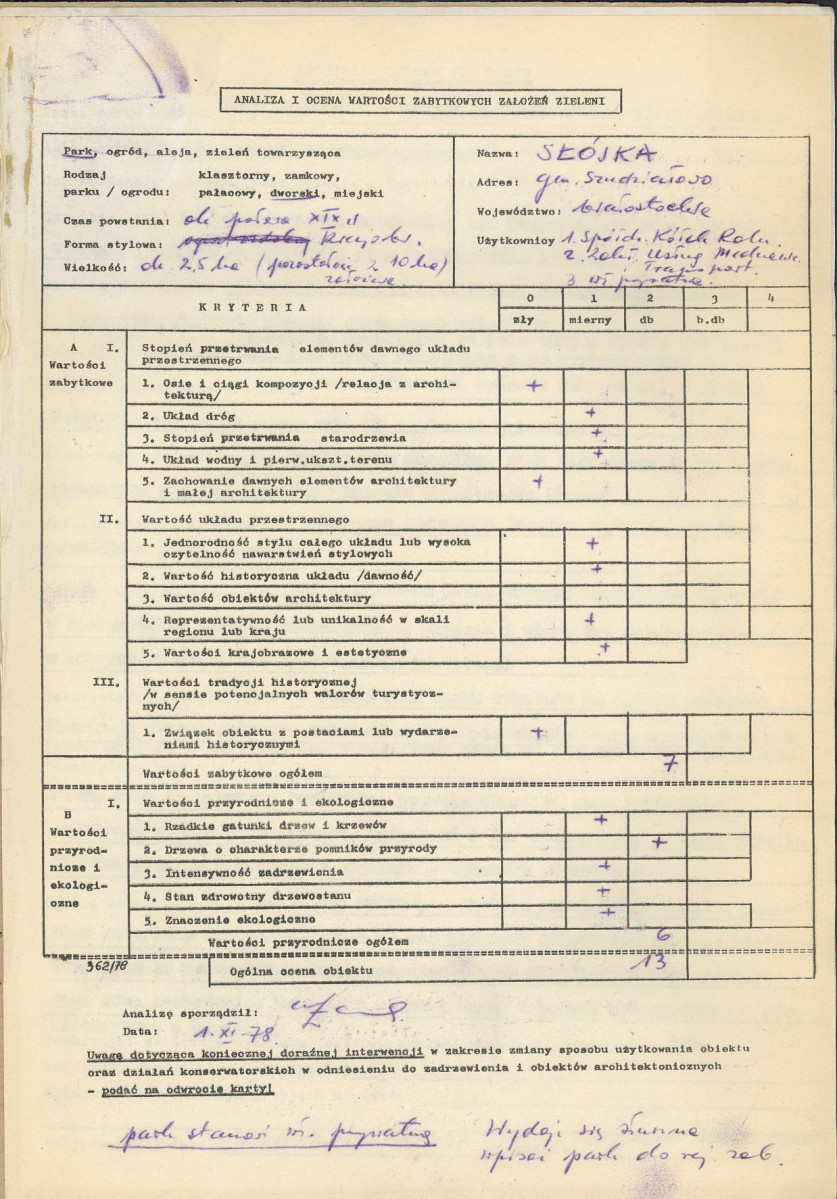 ANALIZA I OCENA WARTOŚCI ZABYTKOWYCH ZAŁOŻEŃ ZIELENI
Park, ogród, aleja, zieleń towarzysząca
Rodzaj klasztorny, zamkowy,
parku / ogrodu: pałacowy, dworski, miejski
Czas powstania: ok. połowa XIX w
Forma stylowa: Krajobr.
Wielkość: ok. 2,5 ha (pozostałość z 10 ha)
Nazwa: SŁÓJKA
Adres: gm. Szudziałowo
Województwo: białostockie
Użytkownicy 1. Spółdz. Kółek Roln.
2. Zakł. Usług Mechaniz.
i Transport.
3 wł prywatna.
KRYTERIA
0 1 2 3 4
zły mierny db b.db
A I. Stopień przetrwania elementów dawnego układu
przestrzennego
Wartości
zabytkowe
1. Osie i ciągi kompozycji /relacja z archi-
tekturą/ +
2. Układ dróg +
3. Stopień przetrwania starodrzewia +
4. Układ wodny i pierw.ukszt.terenu +
5. Zachowanie dawnych elementów architektury
i małej architektury +
II. Wartość układu przestrzennego
1. Jednorodność stylu całego układu lub wysoka
czytelność nawarstwień stylowych +
2. Wartość historyczna układu /dawność/ +
3. Wartość obiektów architektury
4. Reprezentatywność lub unikalność w skali
regionu lub kraju +
5. Wartości krajobrazowe i estetyczne +
III. Wartości tradycji historycznej
/w sensie potencjalnych walorów turystycz-
nych/
1. Związek obiektu z postaciami lub wydarze-
niami historycznymi +
Wartości zabytkowe ogółem 7
B I. Wartości przyrodnicze i ekologiczne
Wartości
przyrod-
nicze i
ekologi-
czne
1. Rzadkie gatunki drzew i krzewów +
2. Drzewa o charakterze pomników przyrody +
3. Intensywność zadrzewienia +
4. Stan zdrowotny drzewostanu +
5. Znaczenie ekologiczne +
Wartości przyrodnicze ogółem 6
362/78
Ogólna ocena obiektu 13
Analizę sporządził:
Data: 1. XI-78.
Uwagę dotycząca koniecznej doraźnej interwencji w zakresie zmiany sposobu użytkowania obiektu
oraz działań konserwatorskich w odniesieniu do zadrzewienia i obiektów architektonicznych
- podać na odwrocie karty!
park stanowi wł. prywatną
Wydaje się słuszne
wpisać park do rej. zab.